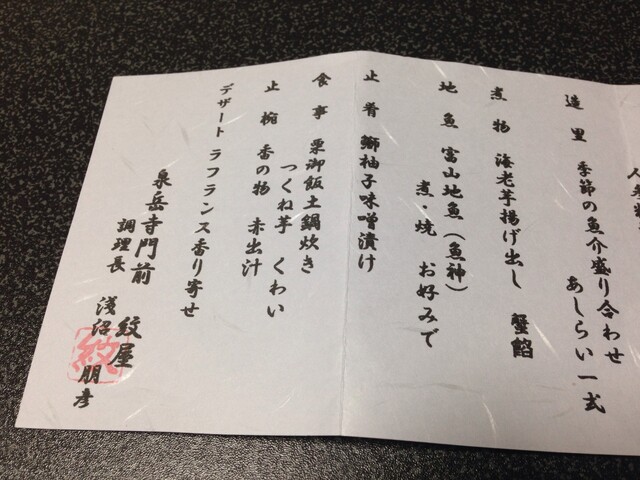 造里 季節の魚介盛り合わせ
あしらい一式
煮物 海老芋揚げ出し 蟹餡
地魚 富山地魚(魚神)
煮・焼 お好みで
止肴 鰤柚子味噌漬け
食事 栗御飯土鍋炊き
つくね芋 くわい
止椀 香の物 赤出汁
デザート ラフランス香り寄せ
泉岳寺門前 紋屋
調理長 浅沼 朋彦
紋